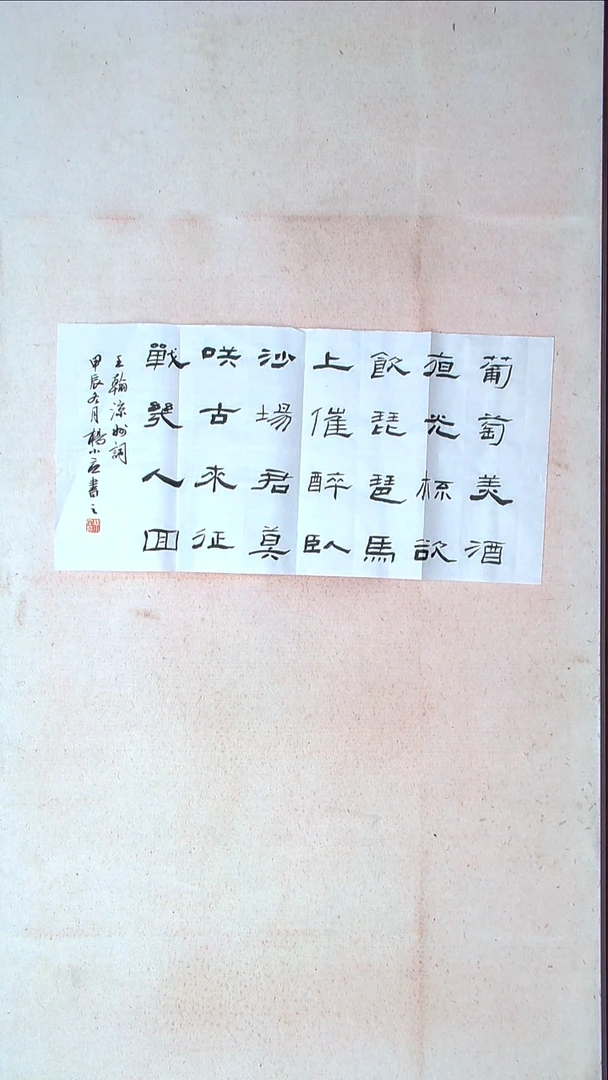 葡萄美酒
夜光杯欲
飲琵琶馬
上催醉臥
沙場君莫
咲古來征
戰幾人回
王翰涼州詞
甲辰冬月楊小書之